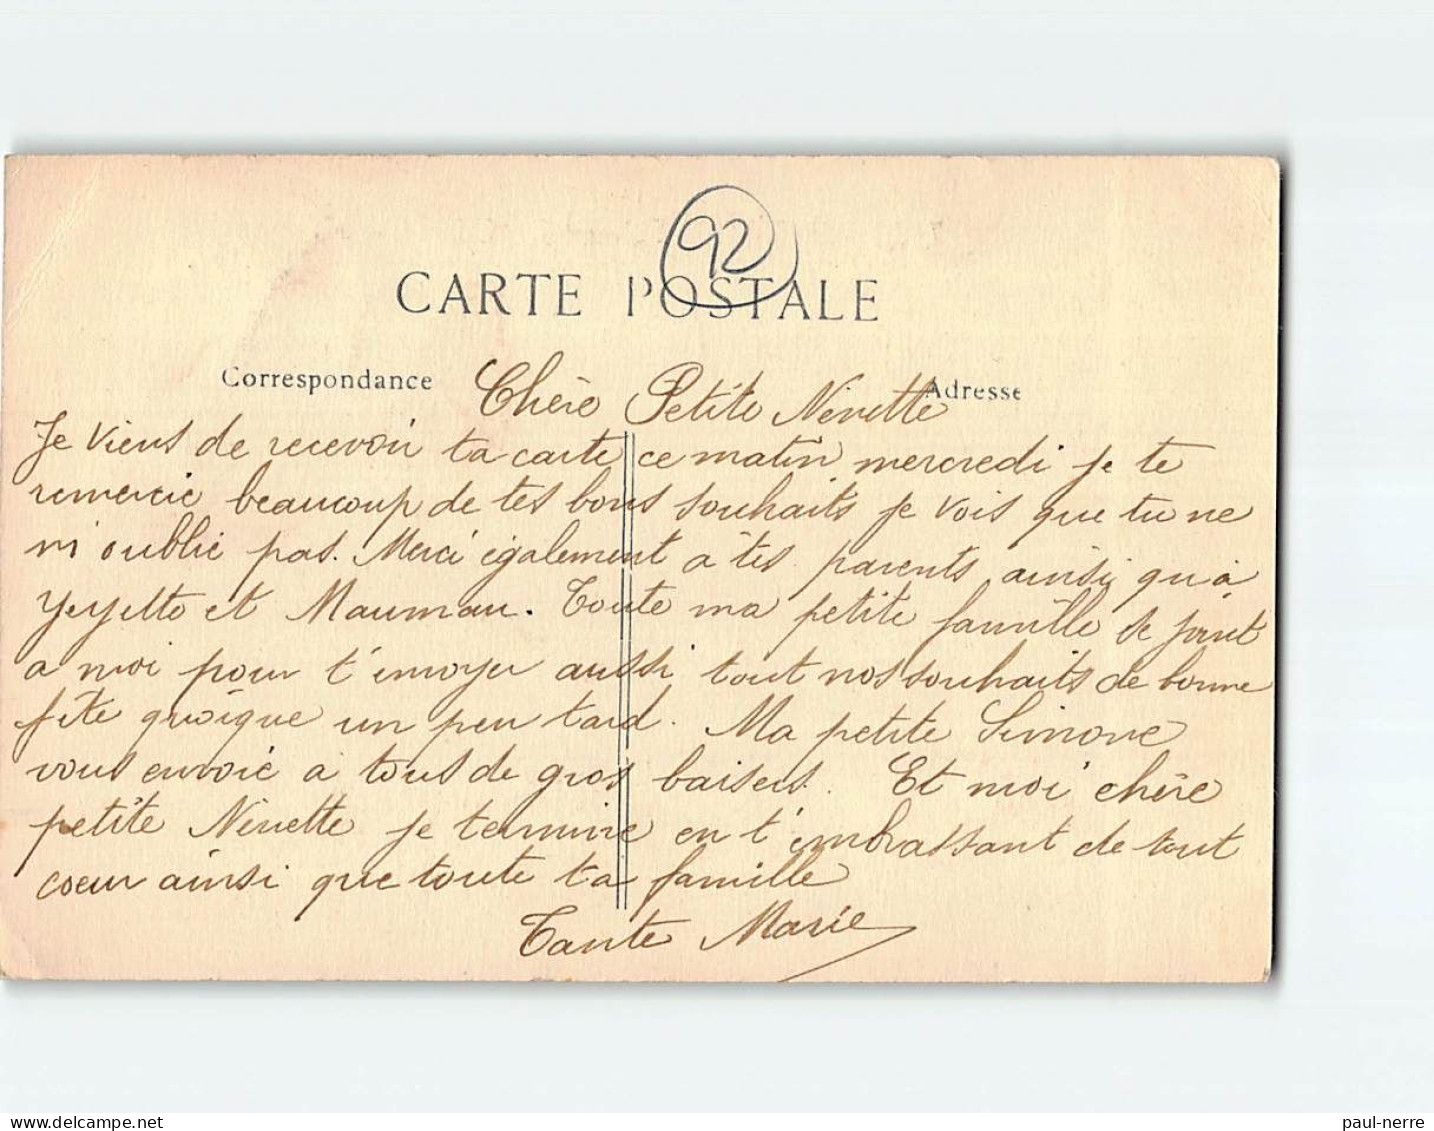 92
CARTE POSTALE
Correspondance
Adresse
Chère Petite Ninette
Je viens de recevoir ta carte ce matin mercredi je te
remercie beaucoup de tes bons souhaits je vois que tu ne
m'oublie pas. Merci également à tes parents ainsi qu'à
Yeyette et Mauman. Toute ma petite famille se joint
a moi pour t'envoyer aussi tout nos souhaits de bonne
fête quoique un peu tard. Ma petite Simone
vous envoie à tous de gros baisers. Et moi chère
petite Ninette je termine en t'embrassant de tout
coeur ainsi que toute ta famille
Tante Marie
delcampe.net
paul-nerre